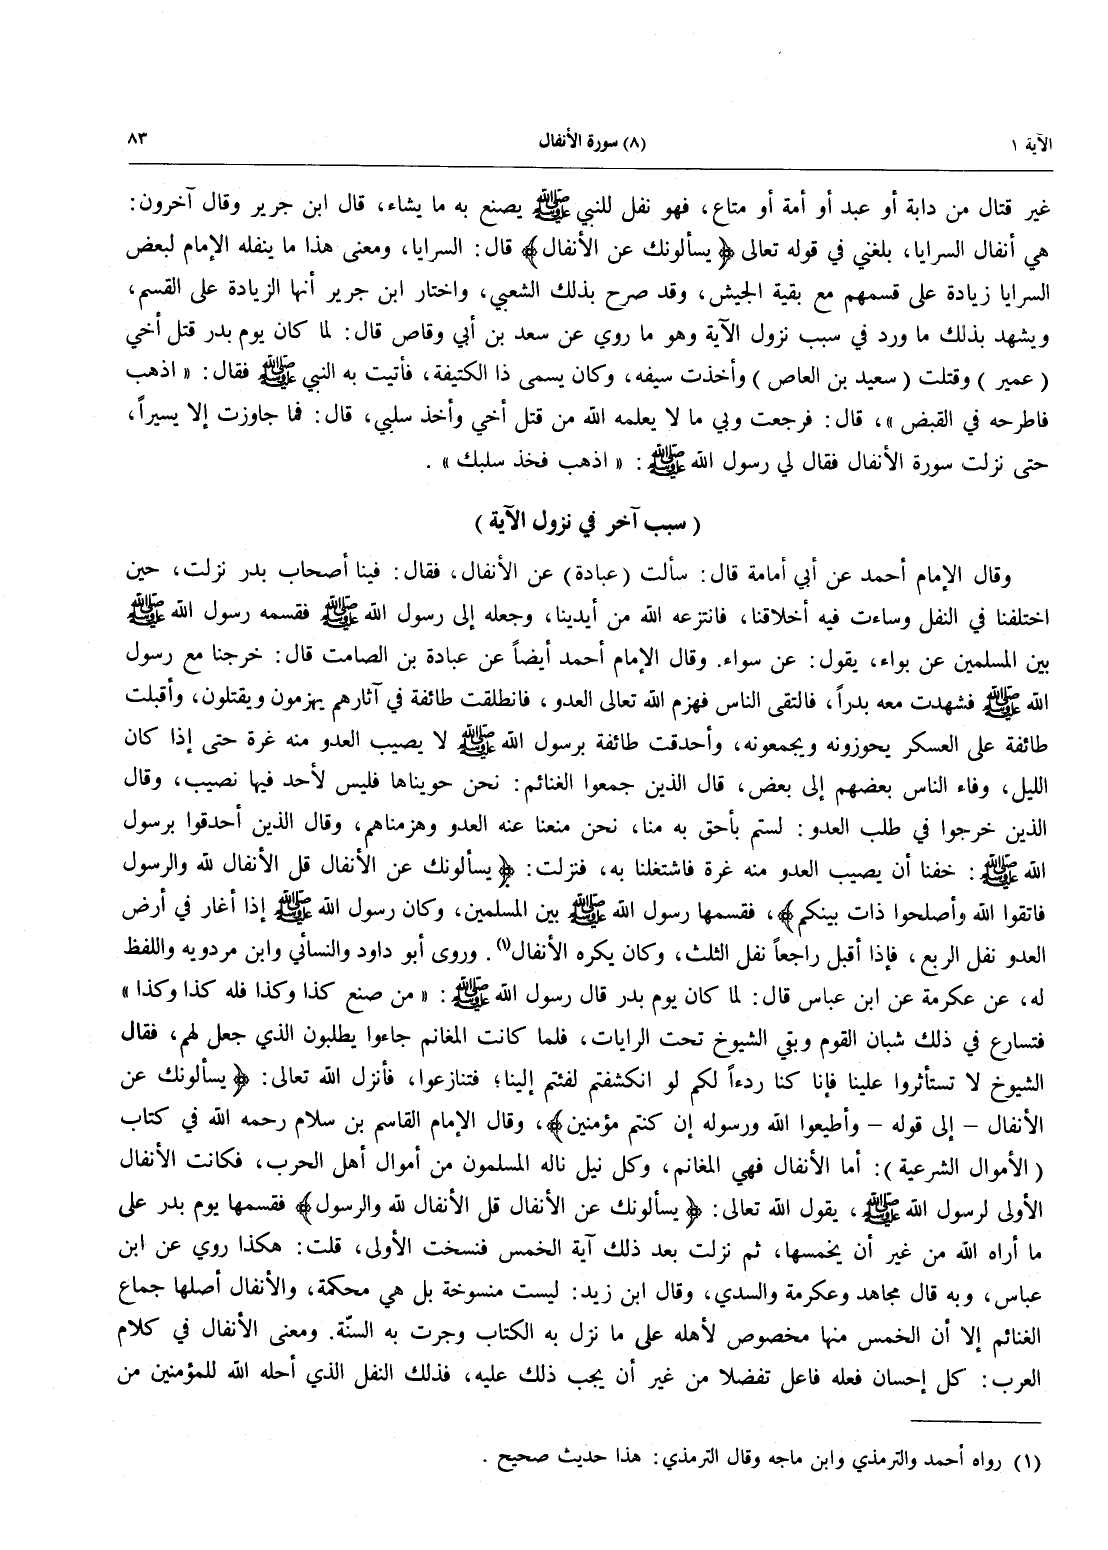 الآية ١
(٨) سورة الأنفال
٨٣
غير قتال من دابة أو عبد أو أمة أو متاع، فهو نفل للنبي ﷺ يصنع به ما يشاء، قال ابن جرير وقال آخرون:
هي أنفال السرايا، بلغني في قوله تعالى ﴿يسألونك عن الأنفال﴾ قال: السرايا، ومعنى هذا ما ينفله الإمام لبعض
السرايا زيادة على قسمهم مع بقية الجيش، وقد صرح بذلك الشعبي، واختار ابن جرير أنها الزيادة على القسم،
ويشهد بذلك ما ورد في سبب نزول الآية وهو ما روي عن سعد بن أبي وقاص قال: لما كان يوم بدر قتل أخي
(عمير) وقتلت (سعيد بن العاص) وأخذت سيفه، وكان يسمى ذا الكتيفة، فأتيت به النبي ﷺ فقال: «اذهب
فاطرحه في القبض»، قال: فرجعت وبي ما لا يعلمه الله من قتل أخي وأخذ سلبي، قال: فما جاوزت إلا يسيراً،
حتى نزلت سورة الأنفال فقال لي رسول الله ﷺ: «اذهب فخذ سلبك».
(سبب آخر في نزول الآية)
وقال الإمام أحمد عن أبي أمامة قال: سألت (عبادة) عن الأنفال، فقال: فينا أصحاب بدر نزلت، حين
اختلفنا في النفل وساءت فيه أخلاقنا، فانتزعه الله من أيدينا، وجعله إلى رسول الله ﷺ فقسمه رسول الله ﷺ
بين المسلمين عن بواء، يقول: عن سواء. وقال الإمام أحمد أيضاً عن عبادة بن الصامت قال: خرجنا مع رسول
الله ﷺ فشهدت معه بدراً، فالتقى الناس فهزم الله تعالى العدو، فانطلقت طائفة في آثارهم يهزمون ويقتلون، وأقبلت
طائفة على العسكر يحوزونه ويجمعونه، وأحدقت طائفة برسول الله ﷺ لا يصيب العدو منه غرة حتى إذا كان
الليل، وفاء الناس بعضهم إلى بعض، قال الذين جمعوا الغنائم: نحن حويناها فليس لأحد فيها نصيب، وقال
الذين خرجوا في طلب العدو: لستم بأحق به منا، نحن منعنا عنه العدو وهزمناهم، وقال الذين أحدقوا برسول
الله ﷺ: خفنا أن يصيب العدو منه غرة فاشتغلنا به، فنزلت: ﴿يسألونك عن الأنفال قل الأنفال لله والرسول
فاتقوا الله وأصلحوا ذات بينكم﴾، فقسمها رسول الله ﷺ بين المسلمين، وكان رسول الله ﷺ إذا أغار في أرض
العدو نفل الربع، فإذا أقبل راجعاً نفل الثلث، وكان يكره الأنفال(١). وروى أبو داود والنسائي وابن مردويه واللفظ
له، عن عكرمة عن ابن عباس قال: لما كان يوم بدر قال رسول الله ﷺ: «من صنع كذا وكذا فله كذا وكذا»
فتسارع في ذلك شبان القوم وبقي الشيوخ تحت الرايات، فلما كانت المغانم جاءوا يطلبون الذي جعل لهم، فقال
الشيوخ لا تستأثروا علينا فإنا كنا ردءاً لكم لو انكشفتم لفئتم إلينا؛ فتنازعوا، فأنزل الله تعالى: ﴿يسألونك عن
الأنفال – إلى قوله – وأطيعوا الله ورسوله إن كنتم مؤمنين﴾، وقال الإمام القاسم بن سلام رحمه الله في كتاب
(الأموال الشرعية): أما الأنفال فهي المغانم، وكل نيل ناله المسلمون من أموال أهل الحرب، فكانت الأنفال
الأولى لرسول الله ﷺ، يقول الله تعالى: ﴿يسألونك عن الأنفال قل الأنفال لله والرسول﴾ فقسمها يوم بدر على
ما أراه الله من غير أن يخمسها، ثم نزلت بعد ذلك آية الخمس فنسخت الأولى، قلت: هكذا روي عن ابن
عباس، وبه قال مجاهد وعكرمة والسدي، وقال ابن زيد: ليست منسوخة بل هي محكمة، والأنفال أصلها جماع
الغنائم إلا أن الخمس منها مخصوص لأهله على ما نزل به الكتاب وجرت به السنّة. ومعنى الأنفال في كلام
العرب: كل إحسان فعله فاعل تفضلا من غير أن يجب ذلك عليه، فذلك النفل الذي أحله الله للمؤمنين من
(١) رواه أحمد والترمذي وابن ماجه وقال الترمذي: هذا حديث صحيح.